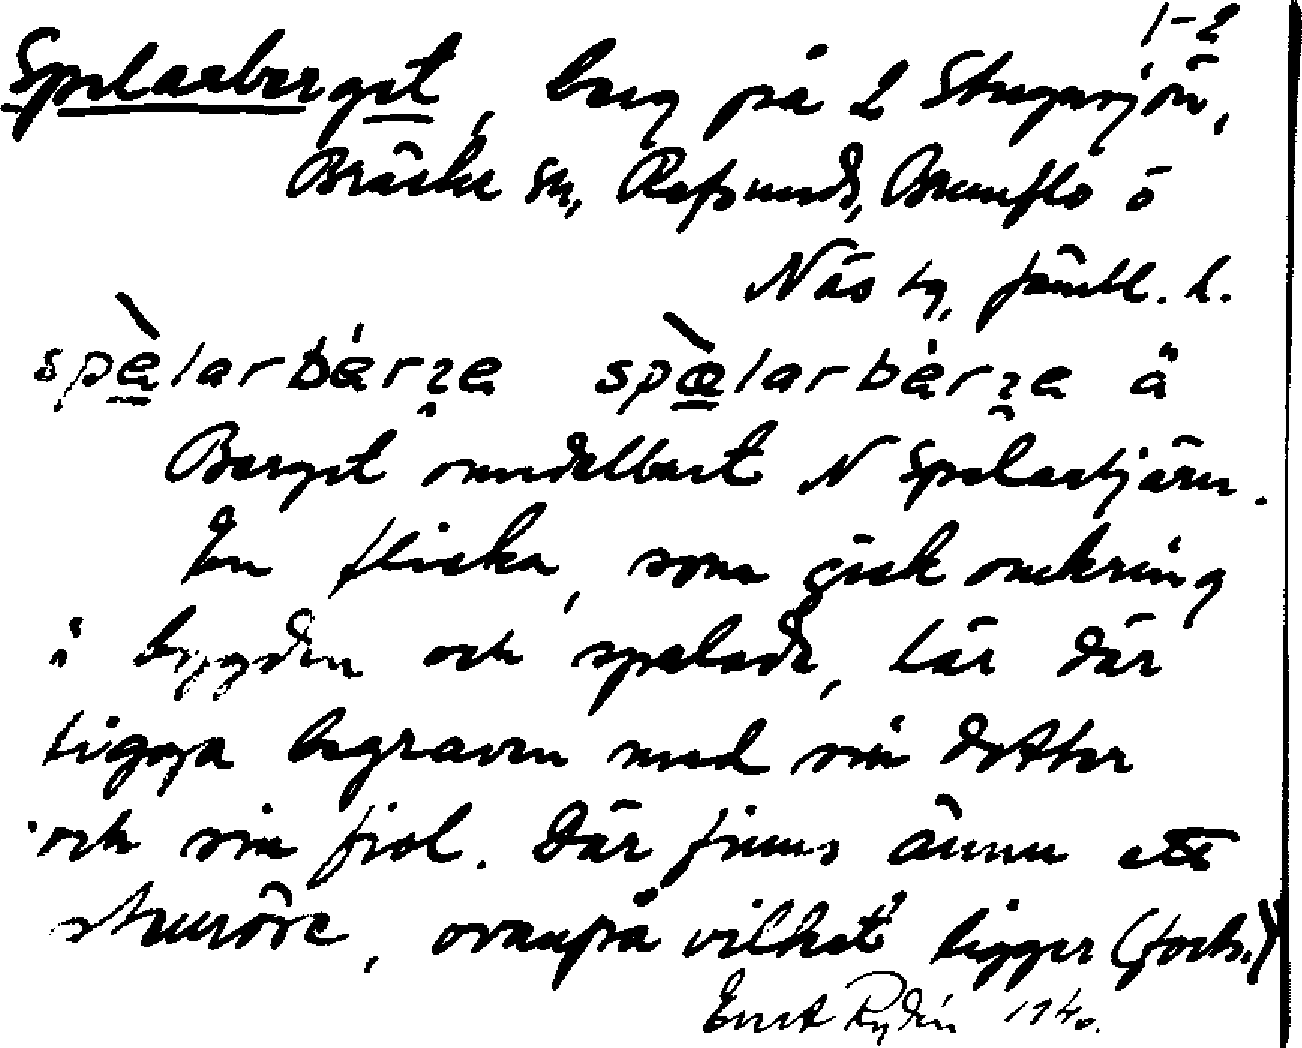 1-2
Spelarberget, berg på 2 Stugusjön,
Bräcke sn, Refsunds, Brunflo o
Näs tg, Jämtl. l.
spèlarbérʒe spæ̀larbérʒe ä
Berget omedelbart N Spelartjärn.
En flicka, som gick omkring
i bygden och spelade, lär där
ligga begraven med sin dotter
och sin fiol. Där finns ännu ett
stenröse, ovanpå vilket ligger (forts.)
Ernst Rydén 1940.